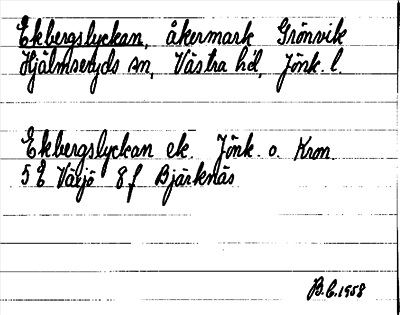 Ekbergslyckan, åkermark Grönvik
Hjälmseryds sn, Västra hd, Jönk. l.
Ekbergslyckan ek. Jönk. o. Kron.
5 E Växjö 8 f Bjärknäs
B.C. 1958